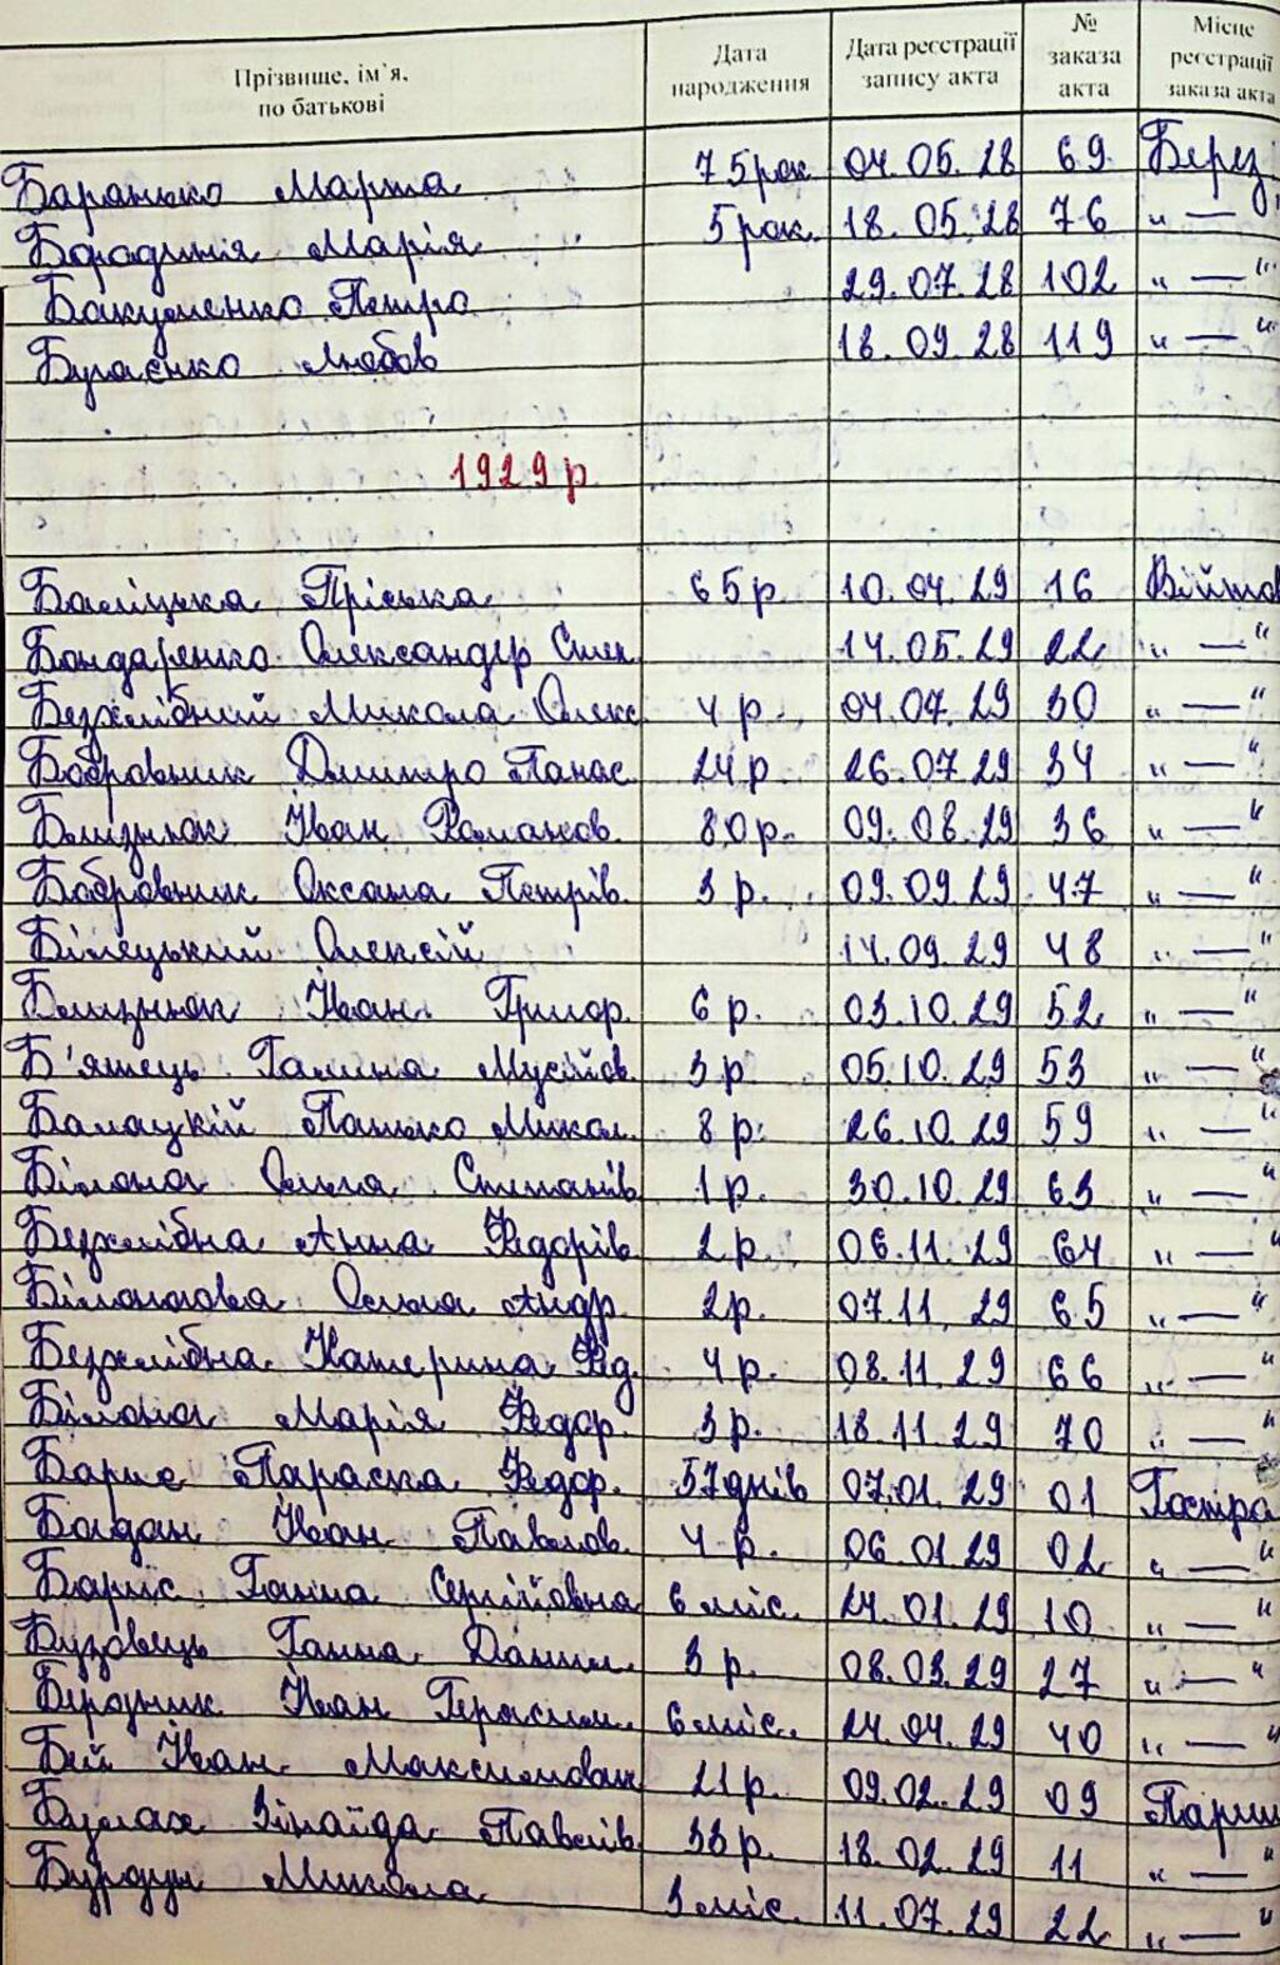 Прізвище, ім`я, по батькові Дата народження Дата реєстрації запису акта № заказа акта Місце реєстрації заказа акта
Баранько Марта 75 рок 04.05.28 69 Берез
Бородиня Марія 5 рок. 18.05.28 76 " — "
Бакуменко Петро 29.07.28 102 " — "
Бугаєнко Любов 18.09.28 119 " — "
1929 р
Баліцька Пріська 65 р. 10.04.29 16 Війтов
Бондаренко Олександер Степ. 14.05.29 22 " — "
Безхлібний Микола Олекс 4 р. 04.07.29 30 " — "
Бобровник Дмитро Панас. 24 р 26.07.29 34 " — "
Близнюк Іван Романов. 80 р. 09.08.29 36 " — "
Бобровник Оксана Петрів. 3 р. 09.09.29 47 " — "
Білецький Олексій 14.09.29 48 " — "
Близнюк Іван Григор. 6 р. 03.10.29 52 " — "
Б'ятець Галина Мусійов. 3 р. 05.10.29 53 " — "
Балацкій Панько Микол. 8 р. 26.10.29 59 " — "
Білана Ольга Степанів 1 р. 30.10.29 63 " — "
Безхлібна Анна Федорів. 2 р. 06.11.29 64 " — "
Біланова Ольга Андр. 2 р. 07.11.29 65 " — "
Безхлібна Катерина Фед. 4 р. 08.11.29 66 " — "
Білана Марія Федор. 3 р. 18.11.29 70 " — "
Барис Параска Федор. 57 днів 07.01.29 01 Гостра
Богдан Іван Павлов. 4 р. 06.01.29 02 " — "
Барис Ганна Сергіївна 6 міс. 24.01.29 10 " — "
Бузовець Ганна Данил. 3 р. 08.03.29 27 " — "
Бородник Іван Герасим. 6 міс. 24.04.29 40 " — "
Бей Іван Максимович 21 р. 09.02.29 09 Париш
Булах Зінаїда Павлів. 33 р. 18.02.29 11 " — "
Бурдун Микола 3 міс. 11.07.29 22 " — "